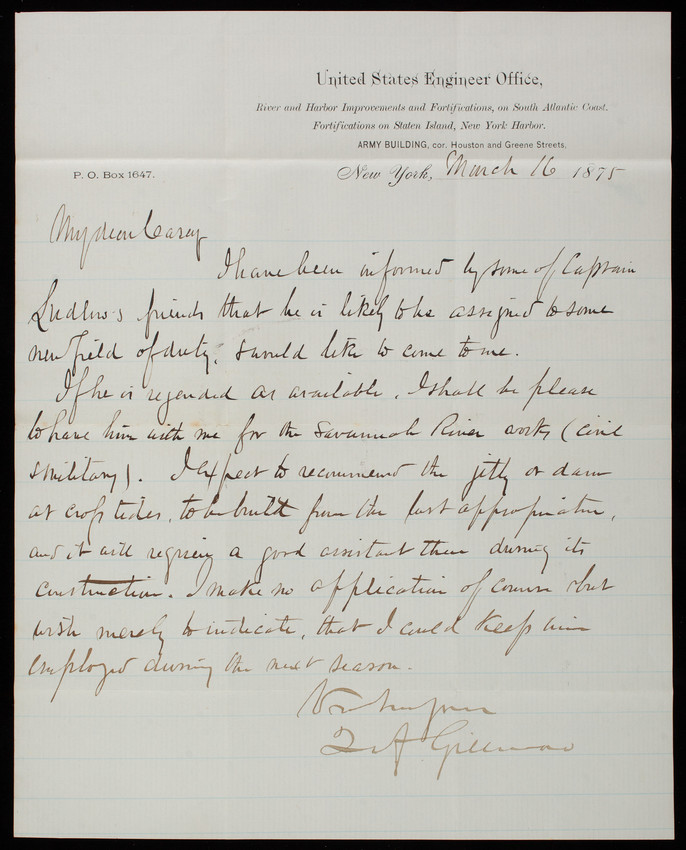 United States Engineer Office,
River and Harbor Improvements and Fortifications, on South Atlantic Coast.
Fortifications on Staten Island, New York Harbor.
ARMY BUILDING, cor. Houston and Greene Streets,
P. O. Box 1647.
New York, March 16 1875
My dear Casey
I have been informed by some of Captain
Ludlow's friends that he is likely to be assigned to some
new field of duty, & would like to come to me.
If he is regarded as available, I shall be please
to have him with me for the Savannah River works (civil
& military). I expect to recommend the jetty or dam
at cross tides, to be built from the last appropriation,
and it will require a good assistant there during its
construction. I make no application of course but
wish merely to indicate, that I could keep him
employed during the next season.
Very truly yours
Q A Gillmore